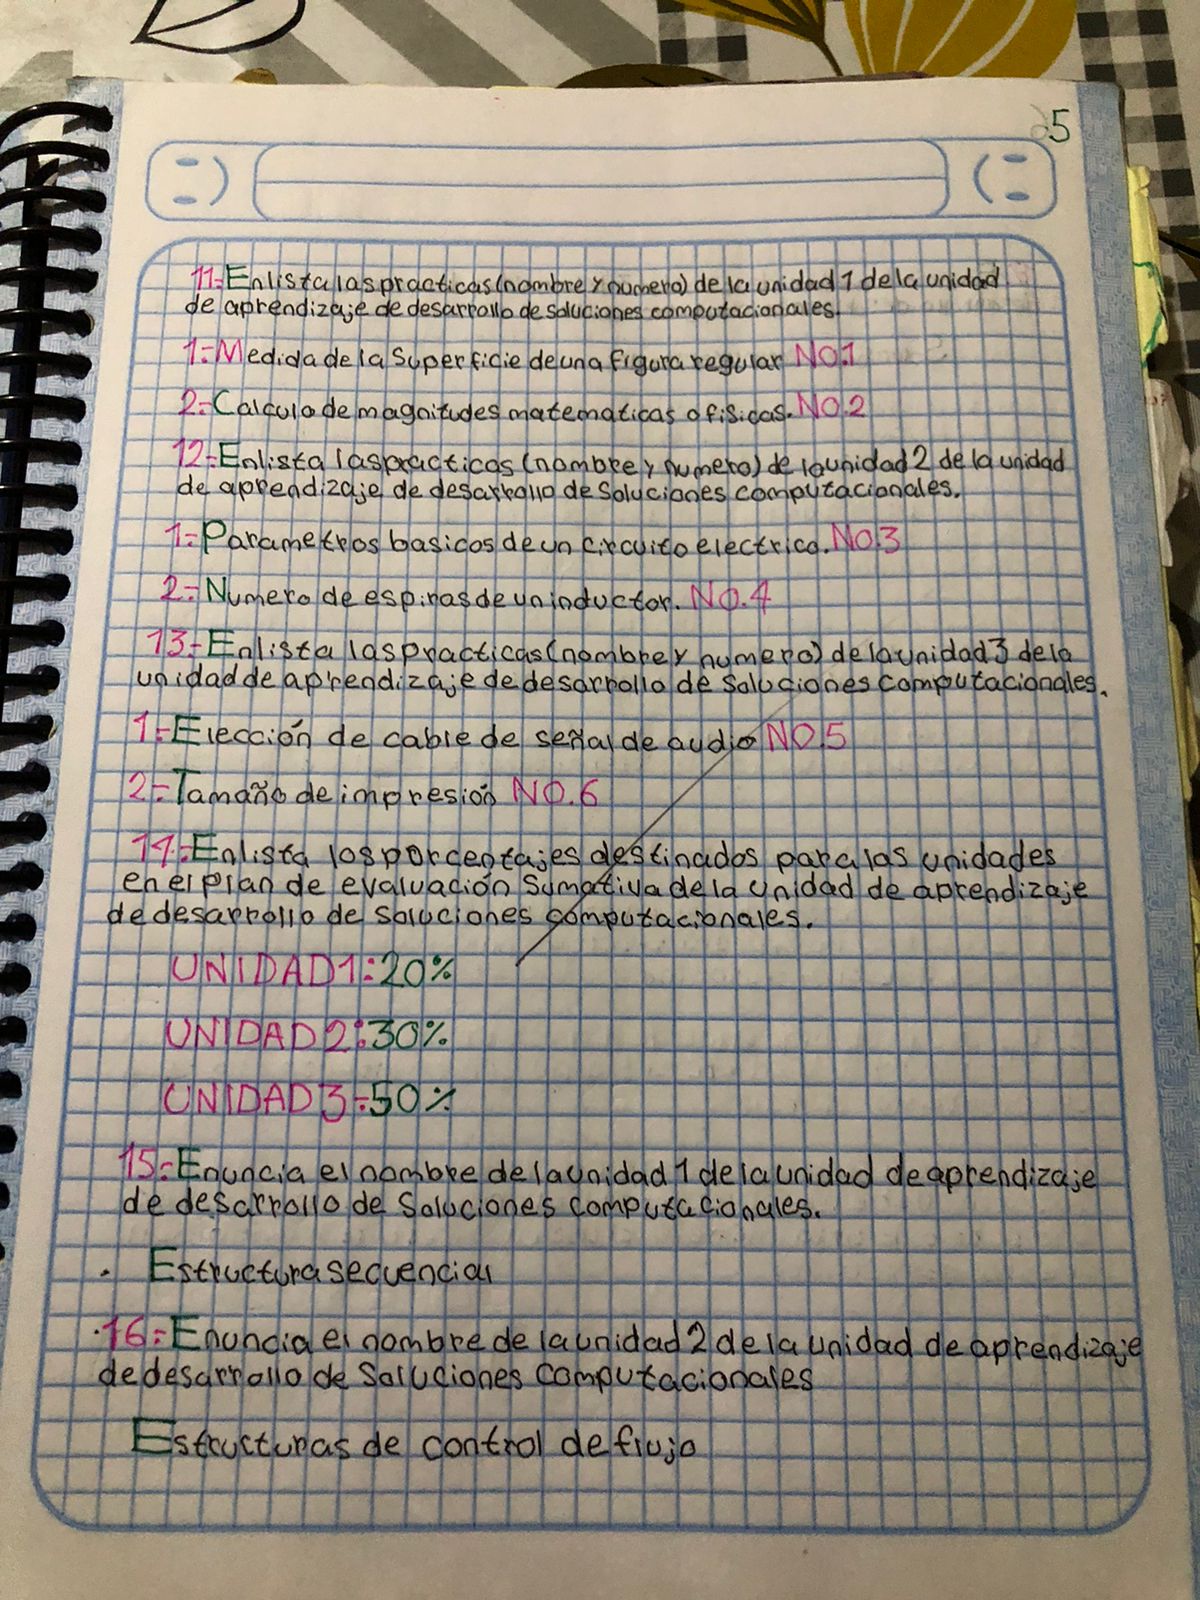 5
11:Enlista las practicas(nombre y numero) de la unidad 1 de la unidad
de aprendizaje de desarrollo de soluciones computacionales.
1:Medida de la Superficie de una figura regular NO.1
2:Calculo de magnitudes matematicas o fisicas. NO.2
12:Enlista las practicas (nombre y numero) de la unidad 2 de la unidad
de aprendizaje de desarrollo de Soluciones computacionales.
1:Parametros basicos de un circuito electrico. NO.3
2:Numero de espiras de un inductor. NO.4
13:Enlista las practicas(nombre y numero) de la unidad 3 de la
unidad de aprendizaje de desarrollo de Soluciones computacionales.
1:Elección de cable de señal de audio NO.5
2:Tamaño de impresión NO.6
14:Enlista los porcentajes destinados para las unidades
en el plan de evaluación Sumativa de la unidad de aprendizaje
de desarrollo de Soluciones computacionales.
UNIDAD 1:20%
UNIDAD 2:30%
UNIDAD 3:50%
15:Enuncia el nombre de la unidad 1 de la unidad de aprendizaje
de desarrollo de Soluciones computacionales.
Estructura secuencial
16:Enuncia el nombre de la unidad 2 de la unidad de aprendizaje
de desarrollo de Soluciones computacionales
Estructuras de control de flujo